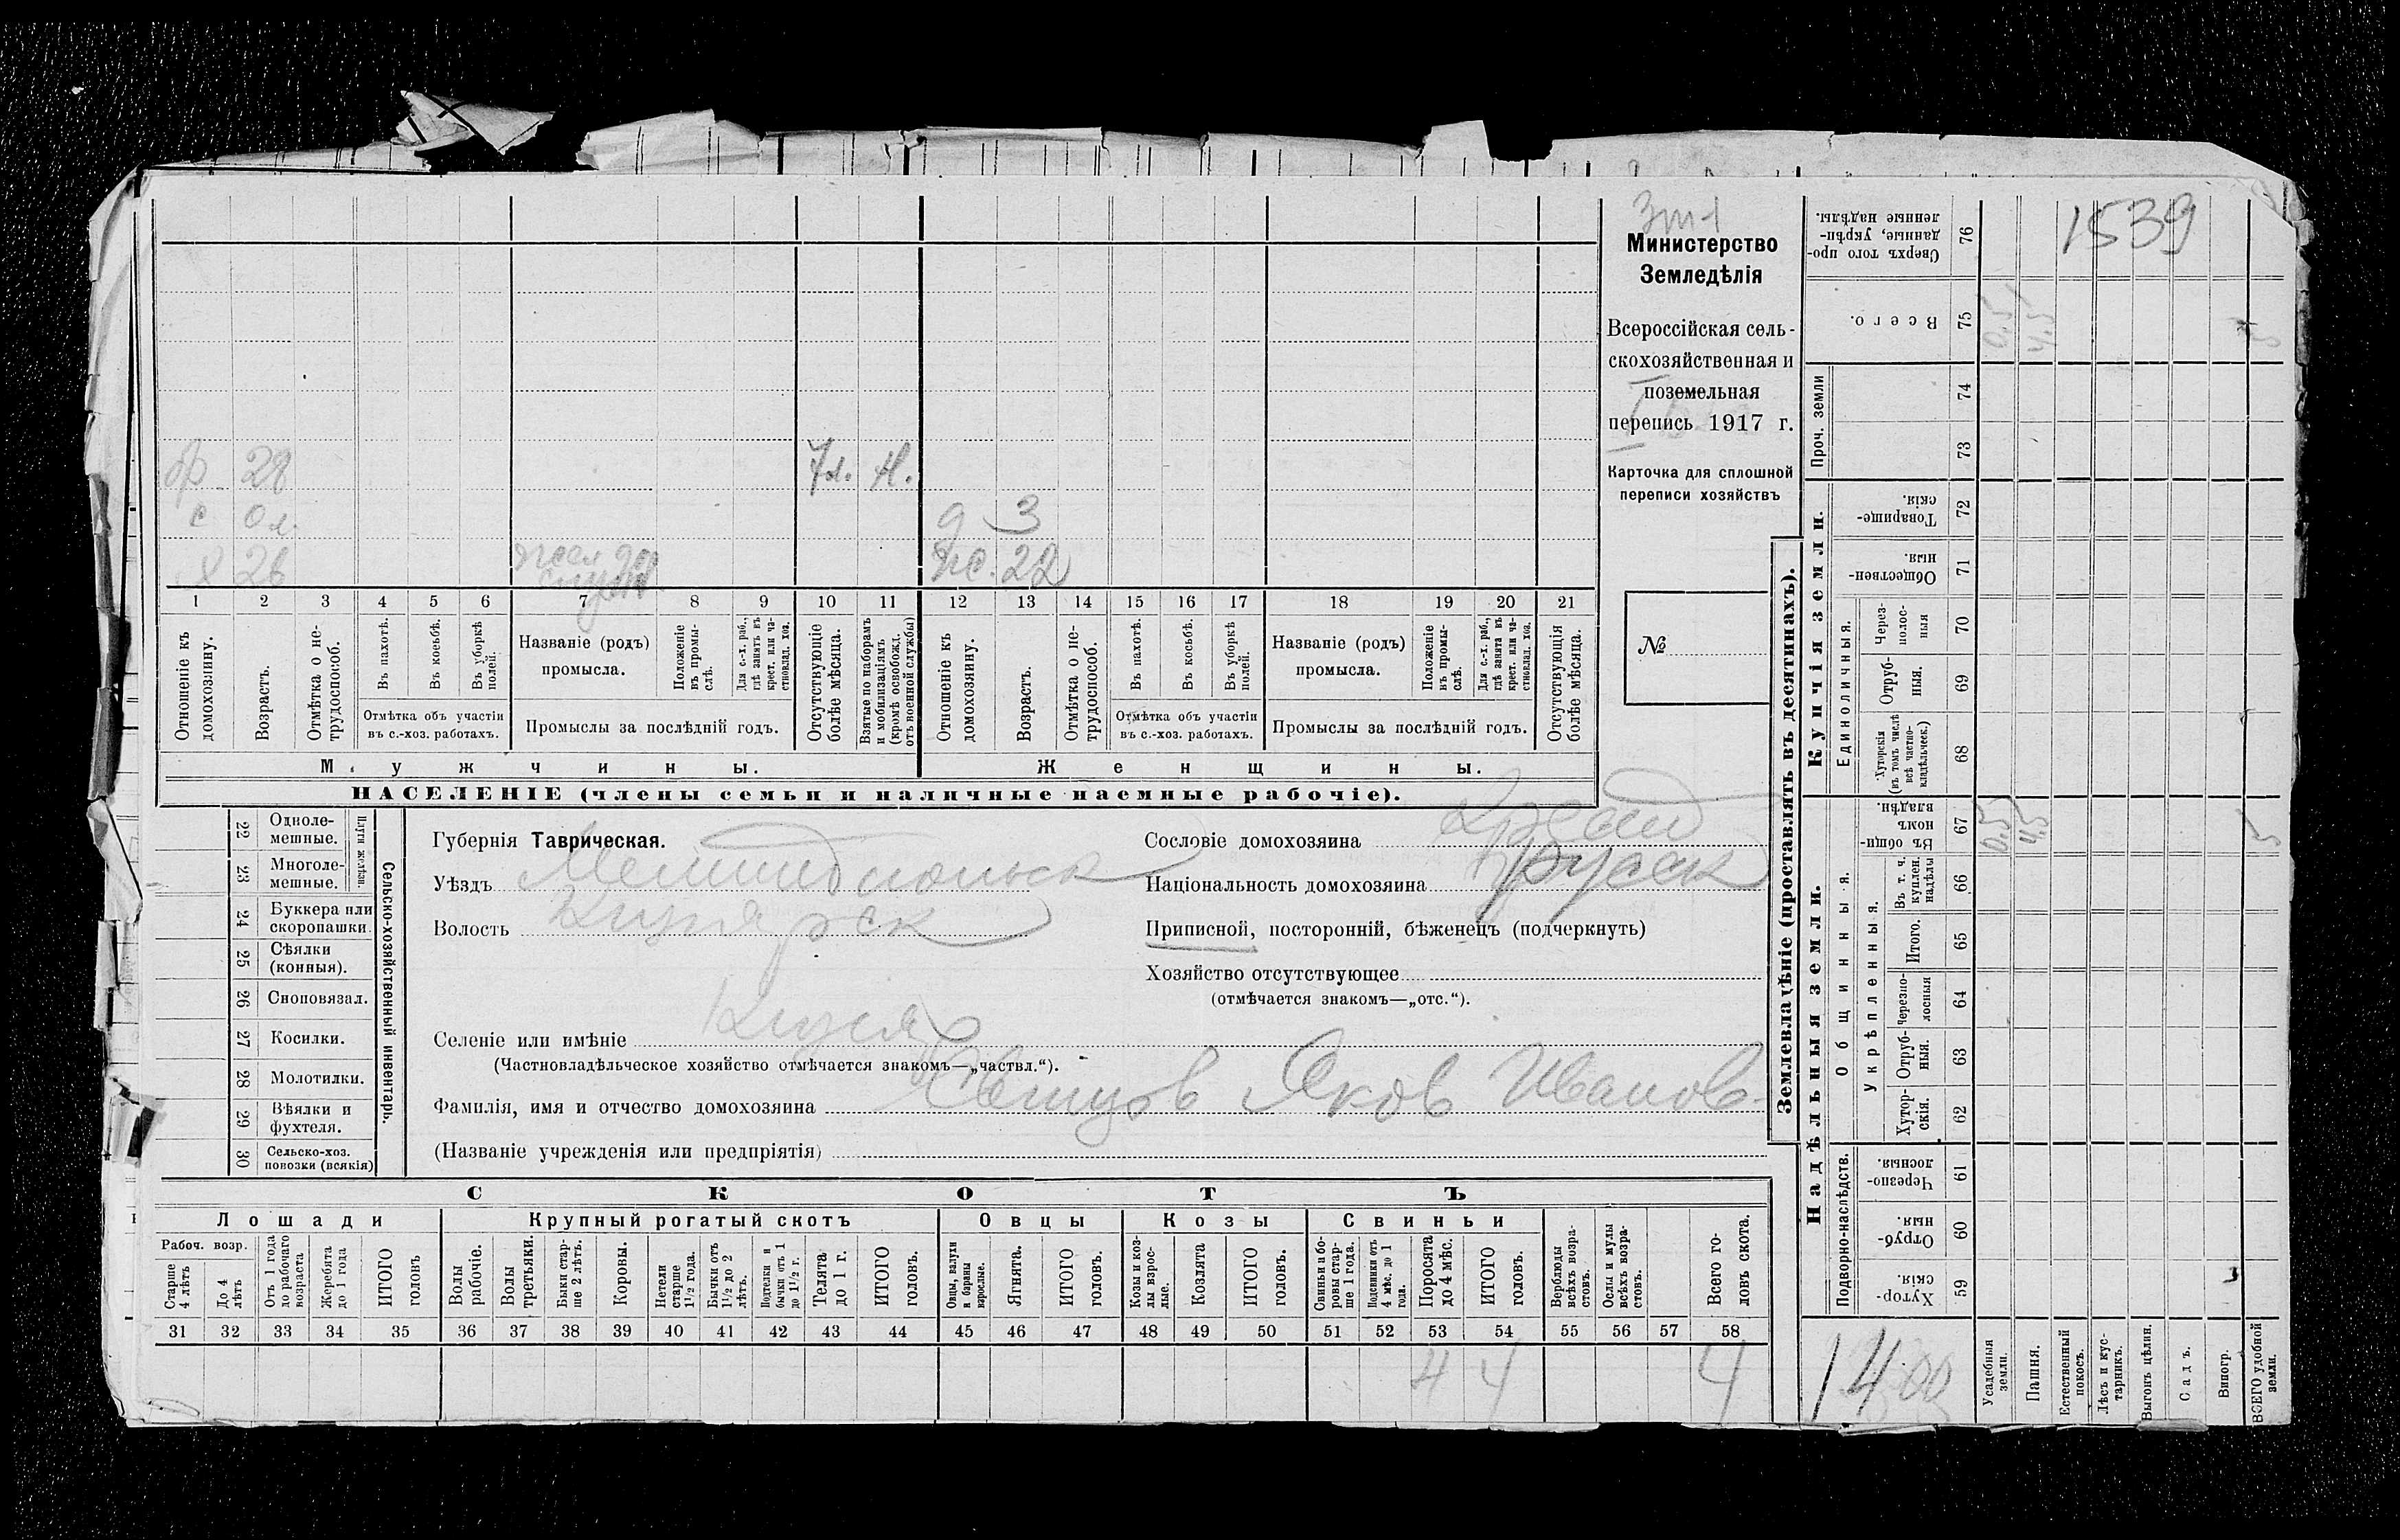 Зт1
Министерство
Земледѣлія
Всероссійская сель-
скохозяйственная и
поземельная
перепись 1917 г.
Карточка для сплошной
переписи хозяйствъ
№
бр 28 7л. м.
с 0 л. д 3
х 26 ж. 22
1 2 3 4 5 6 7 8 9 10 11 12 13 14 15 16 17 18 19 20 21
Отношеніе къ домохозяину.
Возрастъ.
Отмѣтка о не-трудоспособ.
Въ пахотѣ.
Въ косьбѣ.
Въ уборкѣ полей.
Отмѣтка объ участіи
въ с.-хоз. работахъ.
Названіе (родъ)
промысла.
Положеніе въ промы-слѣ.
Для с.-х. раб., гдѣ занятъ въ крест. или ча-стновлад. хоз.
Промыслы за послѣдній годъ.
Отсутствующіе болѣе мѣсяца.
Взятые по наборамъ и мобилизаціямъ (кромѣ освобожд. отъ военной службы)
Отношеніе къ домохозяину.
Возрастъ.
Отмѣтка о не-трудоспособ.
Въ пахотѣ.
Въ косьбѣ.
Въ уборкѣ полей.
Отмѣтка объ участіи
въ с.-хоз. работахъ.
Названіе (родъ)
промысла.
Положеніе въ промы-слѣ.
Для с.-х. раб., гдѣ занята въ крест. или ча-стновлад. хоз.
Промыслы за послѣдній годъ.
Отсутствующія болѣе мѣсяца.
Мужчины. Женщины.
НАСЕЛЕНІЕ (члены семьи и наличные наемные рабочіе).
Сельско-хозяйственный инвентарь.
Плуги желѣзн.
22 Одноле-мешные.
23 Многоле-мешные.
24 Буккера или скоропашки.
25 Сѣялки (конныя).
26 Сноповязал.
27 Косилки.
28 Молотилки.
29 Вѣялки и фухтеля.
30 Сельско-хоз. повозки (всякія)
Губернія Таврическая.
Уѣздъ Мелитопольск
Волость Кизиярск
Селеніе или имѣніе Кизияр
(Частновладѣльческое хозяйство отмѣчается знакомъ—„частвл.“).
Фамилія, имя и отчество домохозяина Яков Иванов
(Названіе учрежденія или предпріятія)
Сословіе домохозяина
Національность домохозяина русск
Приписной, посторонній, бѣженецъ (подчеркнуть)
Хозяйство отсутствующее
(отмѣчается знакомъ—„отс.“).
СКОТЪ
Лошади Крупный рогатый скотъ Овцы Козы Свиньи
Рабоч. возр.
Старше 4 лѣтъ
До 4 лѣтъ
Отъ 1 года до рабочаго возраста
Жеребята до 1 года
ИТОГО головъ
Волы рабочіе.
Волы третьяки.
Быки стар-ше 2 лѣтъ.
Коровы.
Нетели старше 1½ года.
Бычки отъ 1½ до 2 лѣтъ.
Подтелки и бычки отъ 1 до 1½ г.
Телята до 1 г.
ИТОГО головъ.
Овцы, валухи и бараны взрослые.
Ягнята.
ИТОГО головъ.
Козы и коз-лы взрос-лые.
Козлята
ИТОГО головъ.
Свиньи и бо-ровы стар-ше 1 года.
Подсвинки отъ 4 мѣс. до 1 года.
Поросята до 4 мѣс.
ИТОГО головъ.
Верблюды всѣхъ возра-стовъ.
Ослы и мулы всѣхъ возра-стовъ.
Всего го-ловъ скота.
31 32 33 34 35 36 37 38 39 40 41 42 43 44 45 46 47 48 49 50 51 52 53 54 55 56 57 58
4 4 4
Землевладѣніе (проставлять въ десятинахъ).
1539
76 Сверхъ того про-данные, укрѣп-ленные надѣлы.
75 Всего. 0,5 4,5 5
Проч. земли
74
73
Купчія земли.
72 Товарище-скія.
71 Обществен-ныя.
Единоличныя.
70 Через-полос-ныя
69 Отруб-ныя.
68 Хуторскія (въ томъ числѣ всѣ частно-владѣльческ.)
Надѣльныя земли.
Общинныя.
67 Въ общи-номъ владѣн. 0,5 4,5 5
Укрѣпленныя.
66 Въ т. ч. куплен. надѣлы
65 Итого.
64 Черезпо-лосныя
63 Отруб-ныя.
62 Хутор-скія.
Подворно-наслѣдств.
61 Черезпо-лосныя.
60 Отруб-ныя.
59 Хутор-скія.
1400
Усадебныя земли.
Пашня.
Естественный покосъ.
Лѣсъ и кус-тарникъ.
Выгонъ цѣлин.
Садъ.
Виногр.
ВСЕГО удобной земли.